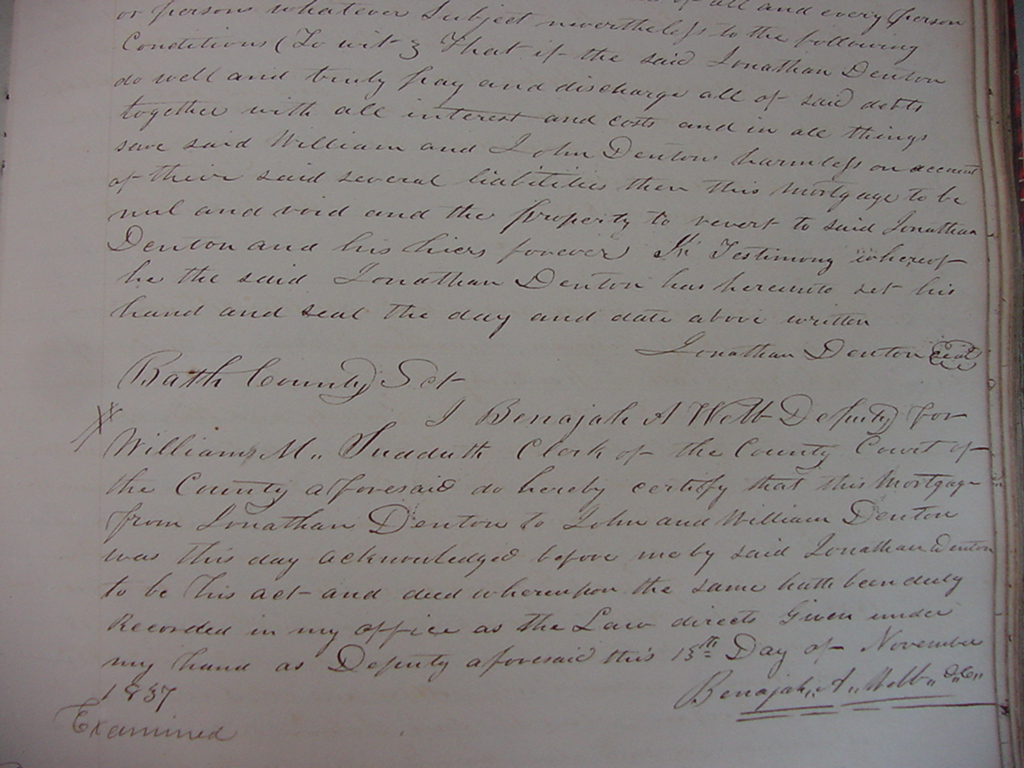 of all and every person
or persons whatever Subject nevertheless to the following
Conditions (To wit) That if the said Jonathan Denton
do well and truly pay and discharge all of said debts
together with all interest and costs and in all things
save said William and John Denton harmless on account
of their said several liabilities then this Mortgage to be
nul and void and the property to revert to said Jonathan
Denton and his hiers forever In Testimony whereof
he the said Jonathan Denton has hereunto set his
hand and seal the day and date above written
Jonathan Denton Seal
Bath County Sct
I Benajah A Webb Deputy for
William M,, Sudduth Clerk of the County Court of
the County aforesaid do hereby certify that this Mortgage
from Jonathan Denton to John and William Denton
was this day acknowledged before me by said Jonathan Denton
to be his act and deed whereupon the same hath been duly
Recorded in my office as the Law directs Given under
my hand as Deputy aforesaid this 15th Day of November
1837
Benajah,, A,, Webb,, D,,C,,
Examined